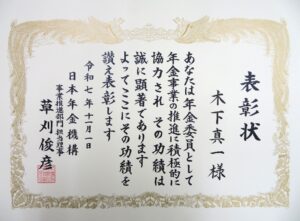 表彰状
木下真一様
あなたは年金委員として
年金事業の推進に積極的に
協力され その功績は
誠に顕著であります
よってここにその功績を
讃え表彰します
令和七年十一月一日
日本年金機構
事業推進部門担当理事
草刈俊彦